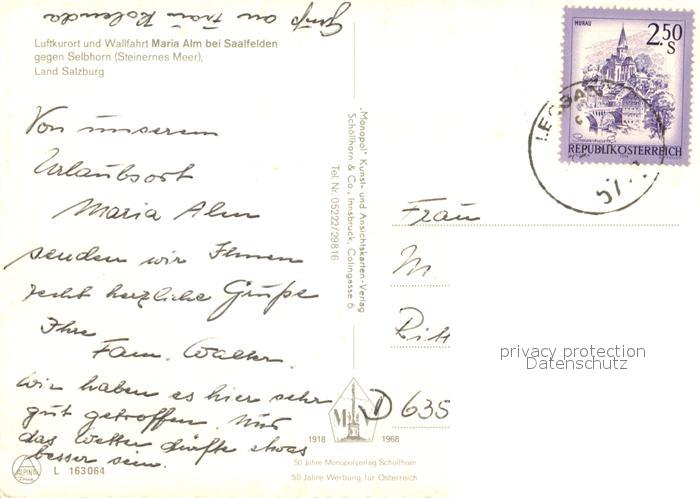 Gruß an Frau Kolenda
Luftkurort und Wallfahrt Maria Alm bei Saalfelden
gegen Selbhorn (Steinernes Meer),
Land Salzburg
Von unserem
Urlaubsort
Maria Alm
senden wir Ihnen
recht herzliche Grüße
Ihre
Fam. Walter.
Wir haben es hier sehr
gut getroffen. Nur
das Wetter dürfte etwas
besser sein.
ALPINA
L 163064
„Monopol“ Kunst- und Ansichtskarten-Verlag
Schöllhorn & Co., Innsbruck, Colingasse 6
Tel. Nr. 05222/29816
M V
1918 1968
50 Jahre Monopolverlag Schöllhorn
50 Jahre Werbung für Österreich
MURAU
2.50
S
REPUBLIK ÖSTERREICH
57
Frau
M.
Ritt
D 635
privacy protection
Datenschutz